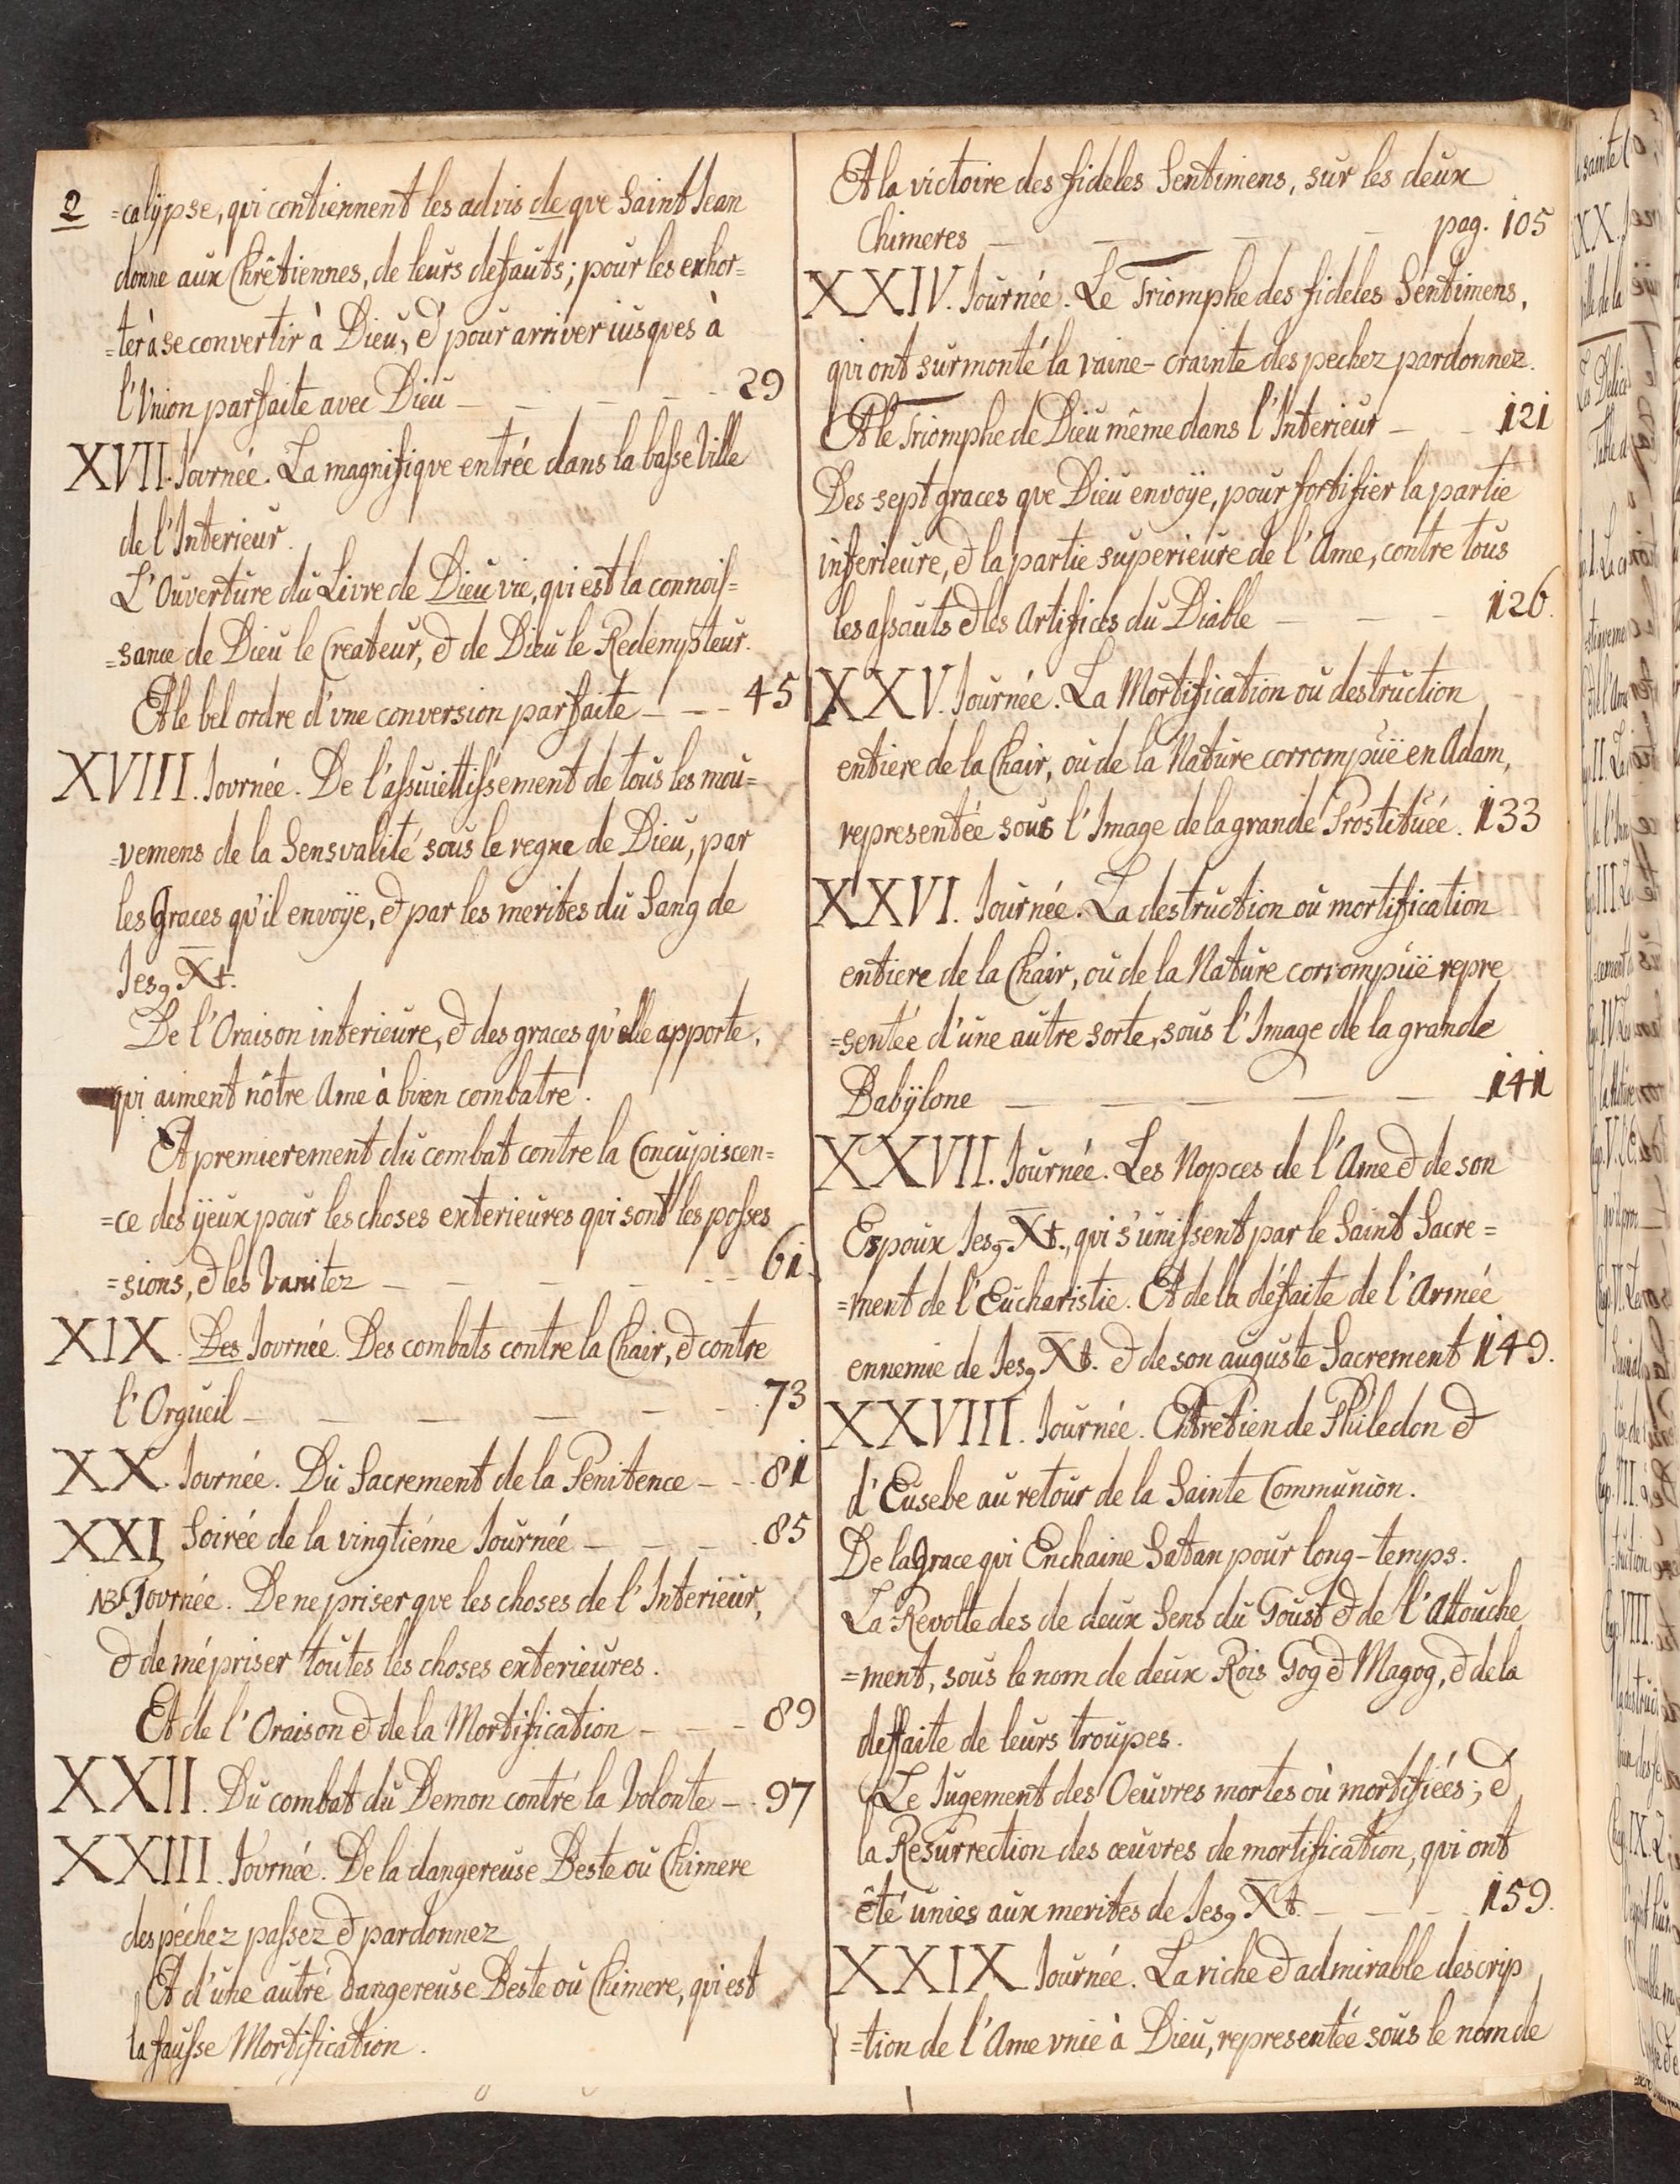 2
=calÿpse, qui contiennent les advis de que Saint Iean
donne aux Chrêtiennes, de leurs defauts; pour les exhor=
=ter à se convertir à Dieu, & pour arriver iusques à
l'Vnion parfaite avec Dieu — — — — — 29
XVII. Iovrnée. La magnifique entrée dans la basse Ville
de l'Interieur.
L'Ouverture du Livre de Dieu vie, qui est la connois=
=sance de Dieu le Createur, & de Dieu le Redempteur.
Et le bel ordre d'vne conversion parfaite — — — 45
XVIII. Iovrnée. De l'assuiettissement de tous les mou=
=vemens de la Sensvalité sous le regne de Dieu, par
les Graces qu'il envoÿe, & par les merites du Sang de
Ies9 Xt.
De l'Oraison interieure, & des graces qu'elle apporte,
qui aiment nôtre Ame à bien combatre.
Et premierement du combat contre la Concupiscen=
=ce des ÿeux pour les choses exterieures qui sont les posses
=sions, & les Vanitez — — — — — 61.
XIX. Des Iovrnée. Des combats contre la Chair, & contre
l'Orgueil — — — — — — 73
XX. Iovrnée. Du Sacrement de la Penitence — — 81
XXI, Soirée de la vingtiéme Iournée — — — — 85
NB Iovrnée. De ne priser que les choses de l'Interieur,
& de mépriser toutes les choses exterieures.
Et de l'Oraison & de la Mortification — — — 89
XXII. Du combat du Demon contre la Volonte — . 97
XXIII. Iovrnée. De la dangereuse Beste ou Chimere
des péchez passez & pardonnez
Et d'une autre dangereuse Beste ou Chimere, qui est
la fausse Mortification.
Et la victoire des fideles Sentimens, sur les deux
Chimeres — — — — pag. 105
XXIV. Iournée. Le Triomphe des fideles Sentimens,
qui ont surmonté la vaine-crainte des pechez pardonnez.
Et le Triomphe de Dieu même dans l'Interieur — — 121
Des sept graces que Dieu envoÿe, pour fortifier la partie
inferieure, & la partie superieure de l'Ame, contre tous
les assauts & les Artifices du Diable — — — 126.
XXV. Iournée. La Mortification ou destruction
entiere de la Chair, ou de la Nature corrompuë en Adam,
representée sous l'Image de la grande Prostituée. 133
XXVI. Iournée. La destruction ou mortification
entiere de la Chair, ou de la Nature corrompuë repre
=sentée d'une autre sorte, sous l'Image de la grande
Babÿlone — — — — — — 141
XXVII. Iournée. Les Nopces de l'Ame & de son
Espoux Ies9 Xt., qui s'unissent par le Saint Sacre=
=ment de l'Eucharistie. Et de la défaite de l'Armée
ennemie de Ies9 Xt. & de son auguste Sacrement 149.
XXVIII. Iournée. Entretien de Philedon &
d'Eusebe au retour de la Sainte Communion.
De la Grace qui Enchaine Satan pour long-temps.
La Revolte des de deux Sens du Goust & de l'Attouche
=ment, sous le nom de deux Rois Gog & Magog, & de la
deffaite de leurs troupes.
Le Iugement des Oeuvres mortes où mortifiées; &
la Resurrection des œuvres de mortification, qui ont
êté unies aux merites de Ies9 Xt. — — — . 159.
XXIX Iournée. La riche & admirable descrip
=tion de l'Ame vnie à Dieu, representée sous le nom de